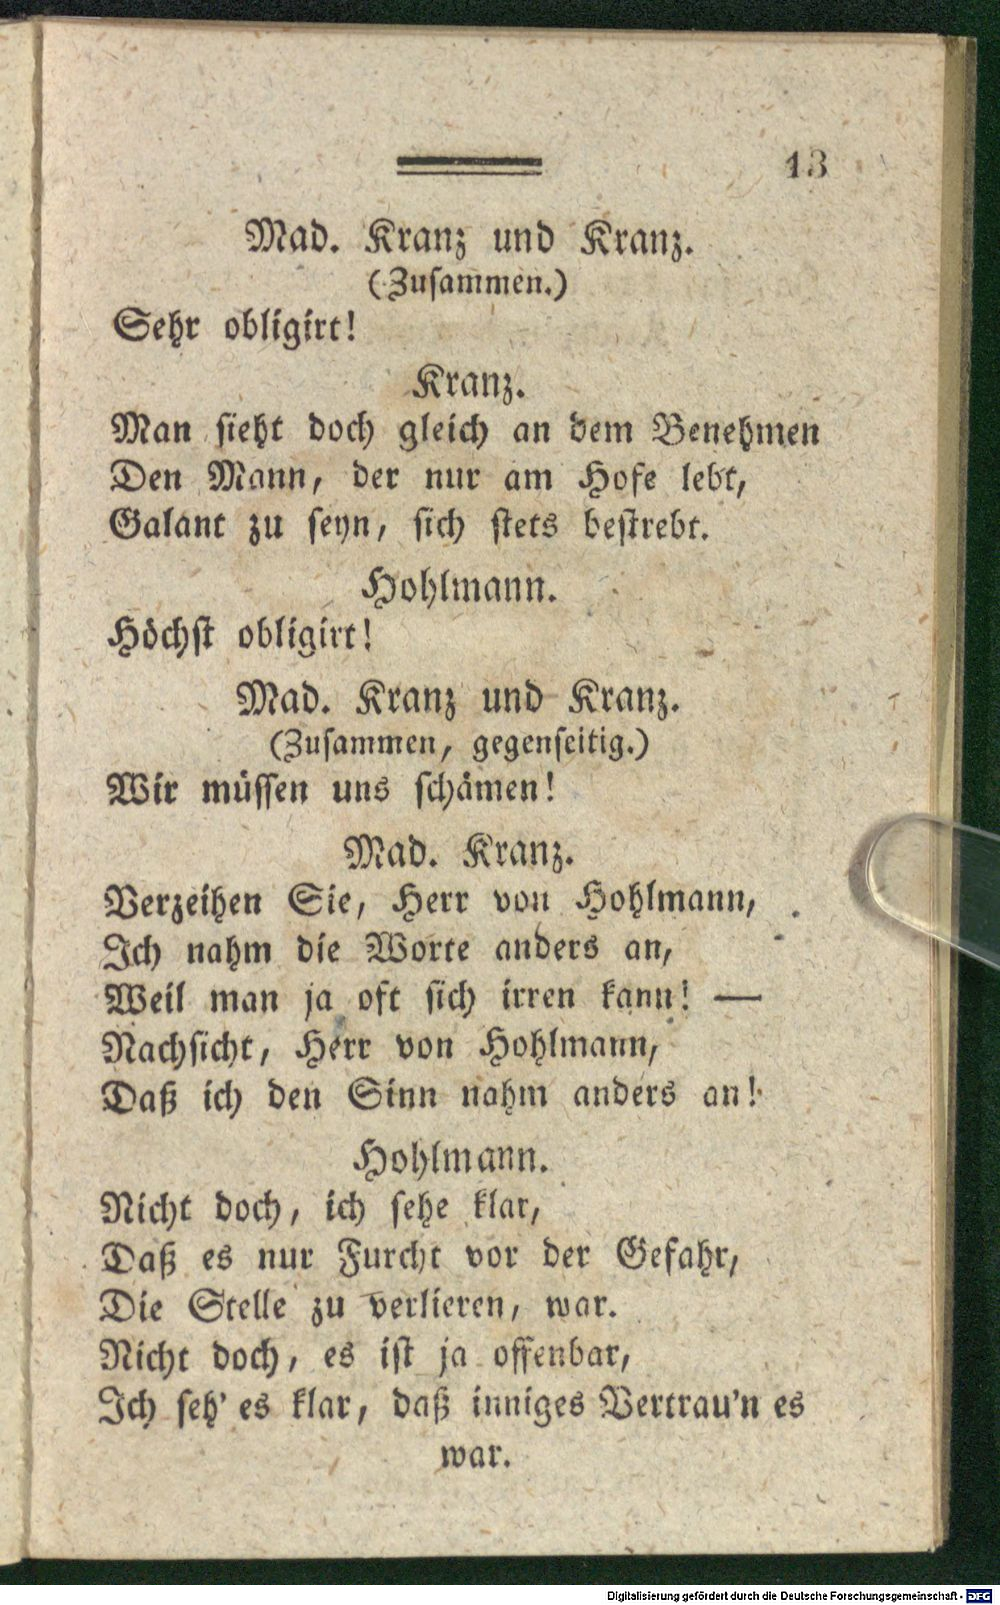 13
Mad. Kranz und Kranz.
(Zusammen.)
Sehr obligirt!
Kranz.
Man sieht doch gleich an dem Benehmen
Den Mann, der nur am Hofe lebt,
Galant zu seyn, sich stets bestrebt.
Hohlmann.
Höchst obligirt!
Mad. Kranz und Kranz.
(Zusammen, gegenseitig.)
Wir müssen uns schämen!
Mad. Kranz.
Verzeihen Sie, Herr von Hohlmann,
Ich nahm die Worte anders an,
Weil man ja oft sich irren kann! —
Nachsicht, Herr von Hohlmann,
Daß ich den Sinn nahm anders an!
Hohlmann.
Nicht doch, ich sehe klar,
Daß es nur Furcht vor der Gefahr,
Die Stelle zu verlieren, war.
Nicht doch, es ist ja offenbar,
Ich seh' es klar, daß inniges Vertrau'n es
war.
Digitalisierung gefördert durch die Deutsche Forschungsgemeinschaft - DFG